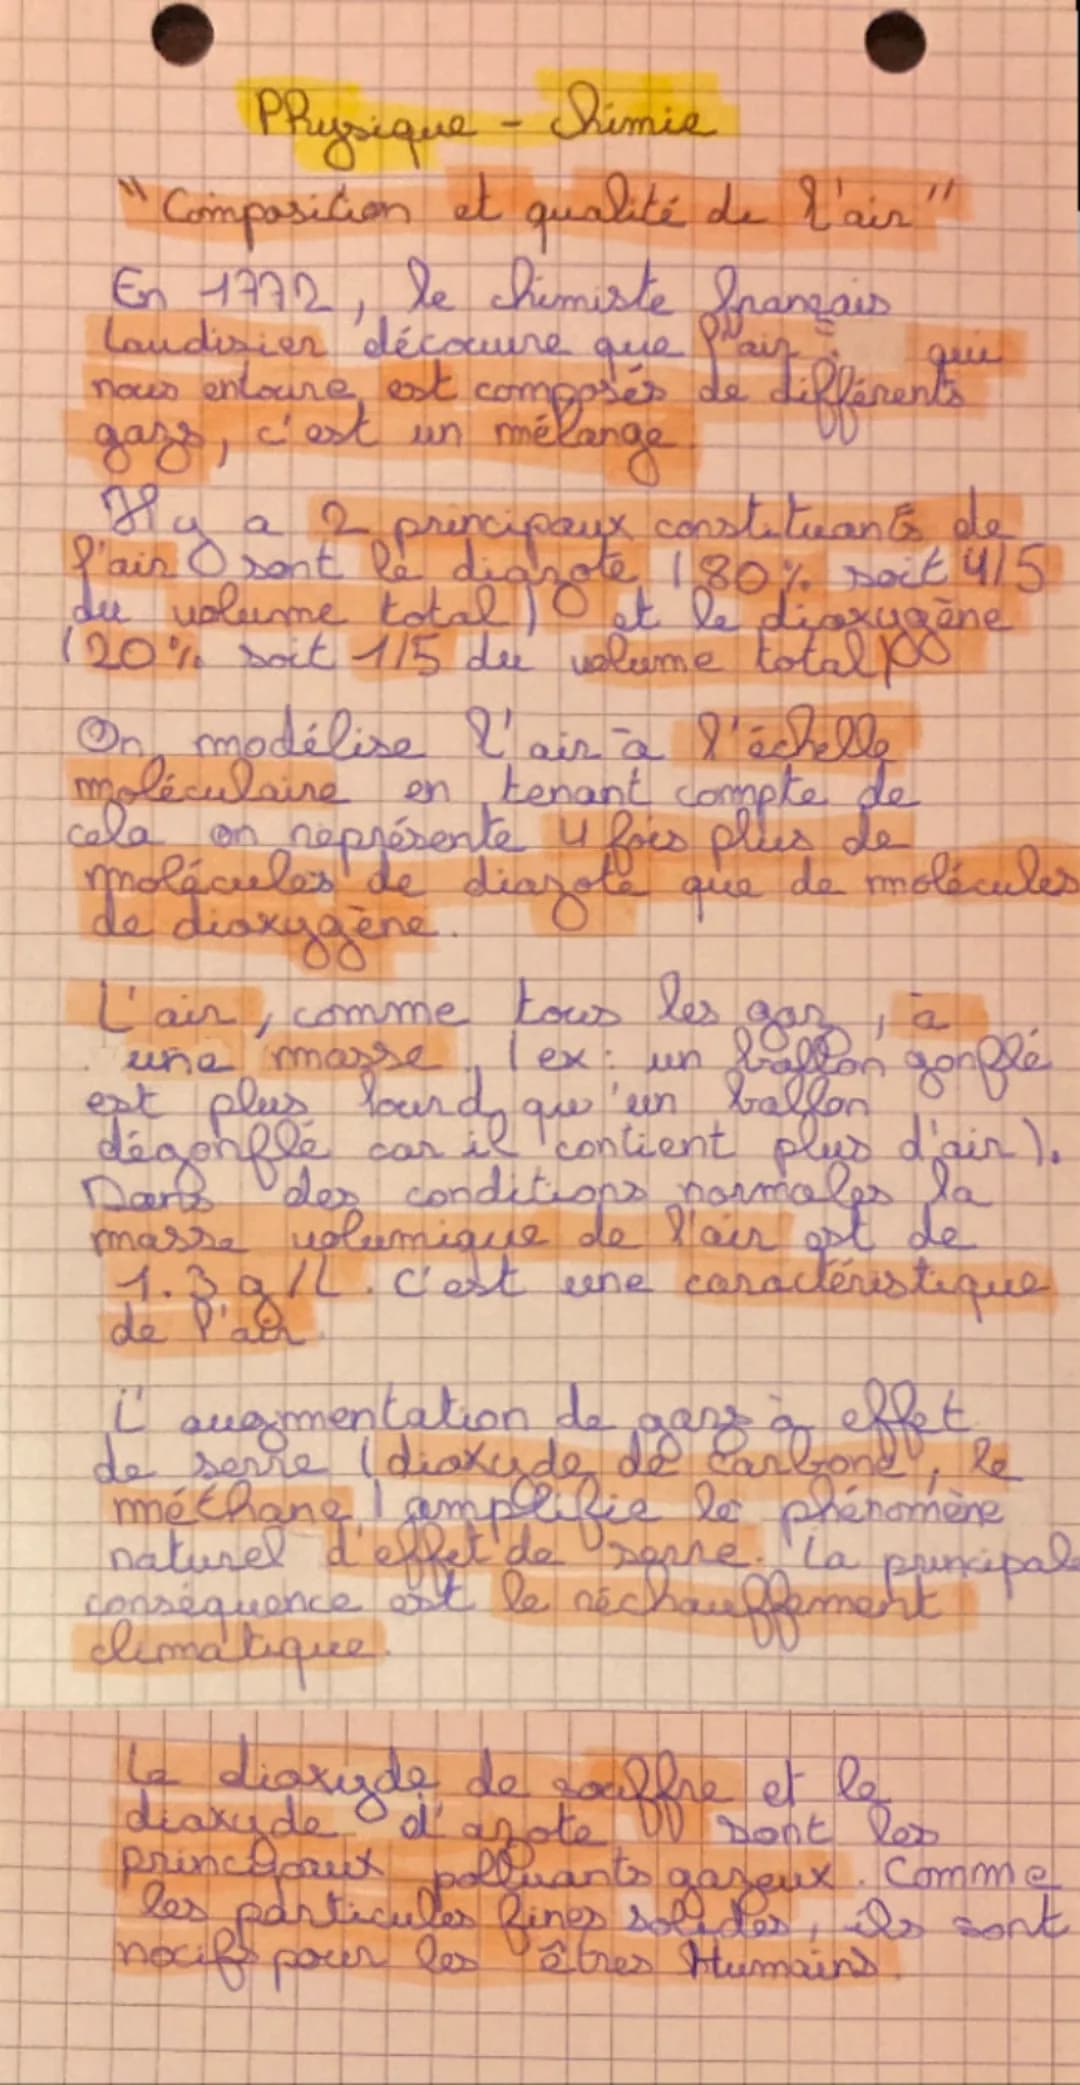 PRysique - Chimie
"Composition et qualité de l'air"
En 1772, le chimiste français
Laudisier découure que l'air qui
nous entoure est composés de différents
gazs, c'est un mélange.
Il y a 2 principaux constituants de
l'air sont le diazote (80% soit 4/5
du volume total) et le dioxygène
(20% soit 1/5 du volume total)
On modélise l'air à l'échelle
moléculaire en tenant compte de
cela on représente 4 fois plus de
molécules de diazote que de molécules
de dioxygène.
L'air, comme tous les gaz, à
une masse, (ex: un ballon gonflé
est plus lourd qu'un ballon
dégonflé car il contient plus d'air).
Dans des conditions normales la
masse volumique de l'air est de
1.3 g/L. C'est une caractéristique
de l'air.
L'augmentation de gazs à effet
de serre (dioxyde de carbone, le
méthane) amplifie le phénomène
naturel d'effet de serre. La principale
conséquence est le réchauffement
climatique.
Le dioxyde de souffre et le
dioxyde d'azote sont les
principaux polluants gazeux. Comme
les particules fines solides, ils sont
nocifs pour les êtres Humains.